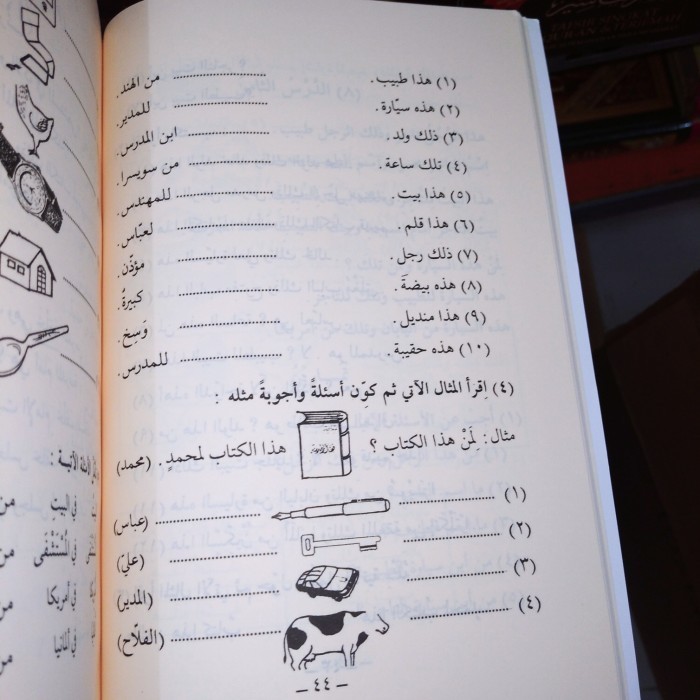 (١) هذا طبيب . .................... من الهند .
(٢) هذه سيّارة . .................... للمدير .
(٣) ذلك ولد . .................... ابن المدرس .
(٤) تلك ساعة . .................... من سويسرا .
(٥) هذا بيت . .................... للمهندس .
(٦) هذا قلم . .................... لعبّاس .
(٧) ذلك رجل . .................... مؤذّن .
(٨) هذه بيضة . .................... كبيرةٌ .
(٩) هذا منديل . .................... وَسِخ .
(١٠) هذه حقيبة . .................... للمدرس .
(٤) اِقرأ المثال الآتي ثم كوّن أسئلةً وأجوبةً مثله :
مثال : لِمَنْ هذا الكتاب ؟ هذا الكتاب لمحمدٍ . (محمد)
(١) .................... .................... (عباس)
(٢) .................... .................... (عليّ)
(٣) .................... .................... (المدير)
(٤) .................... .................... (الفلّاح)
– ٤٤ –
في البيتِ
في المُسْتَشْفَى
في أمريكا
في ألمانيا